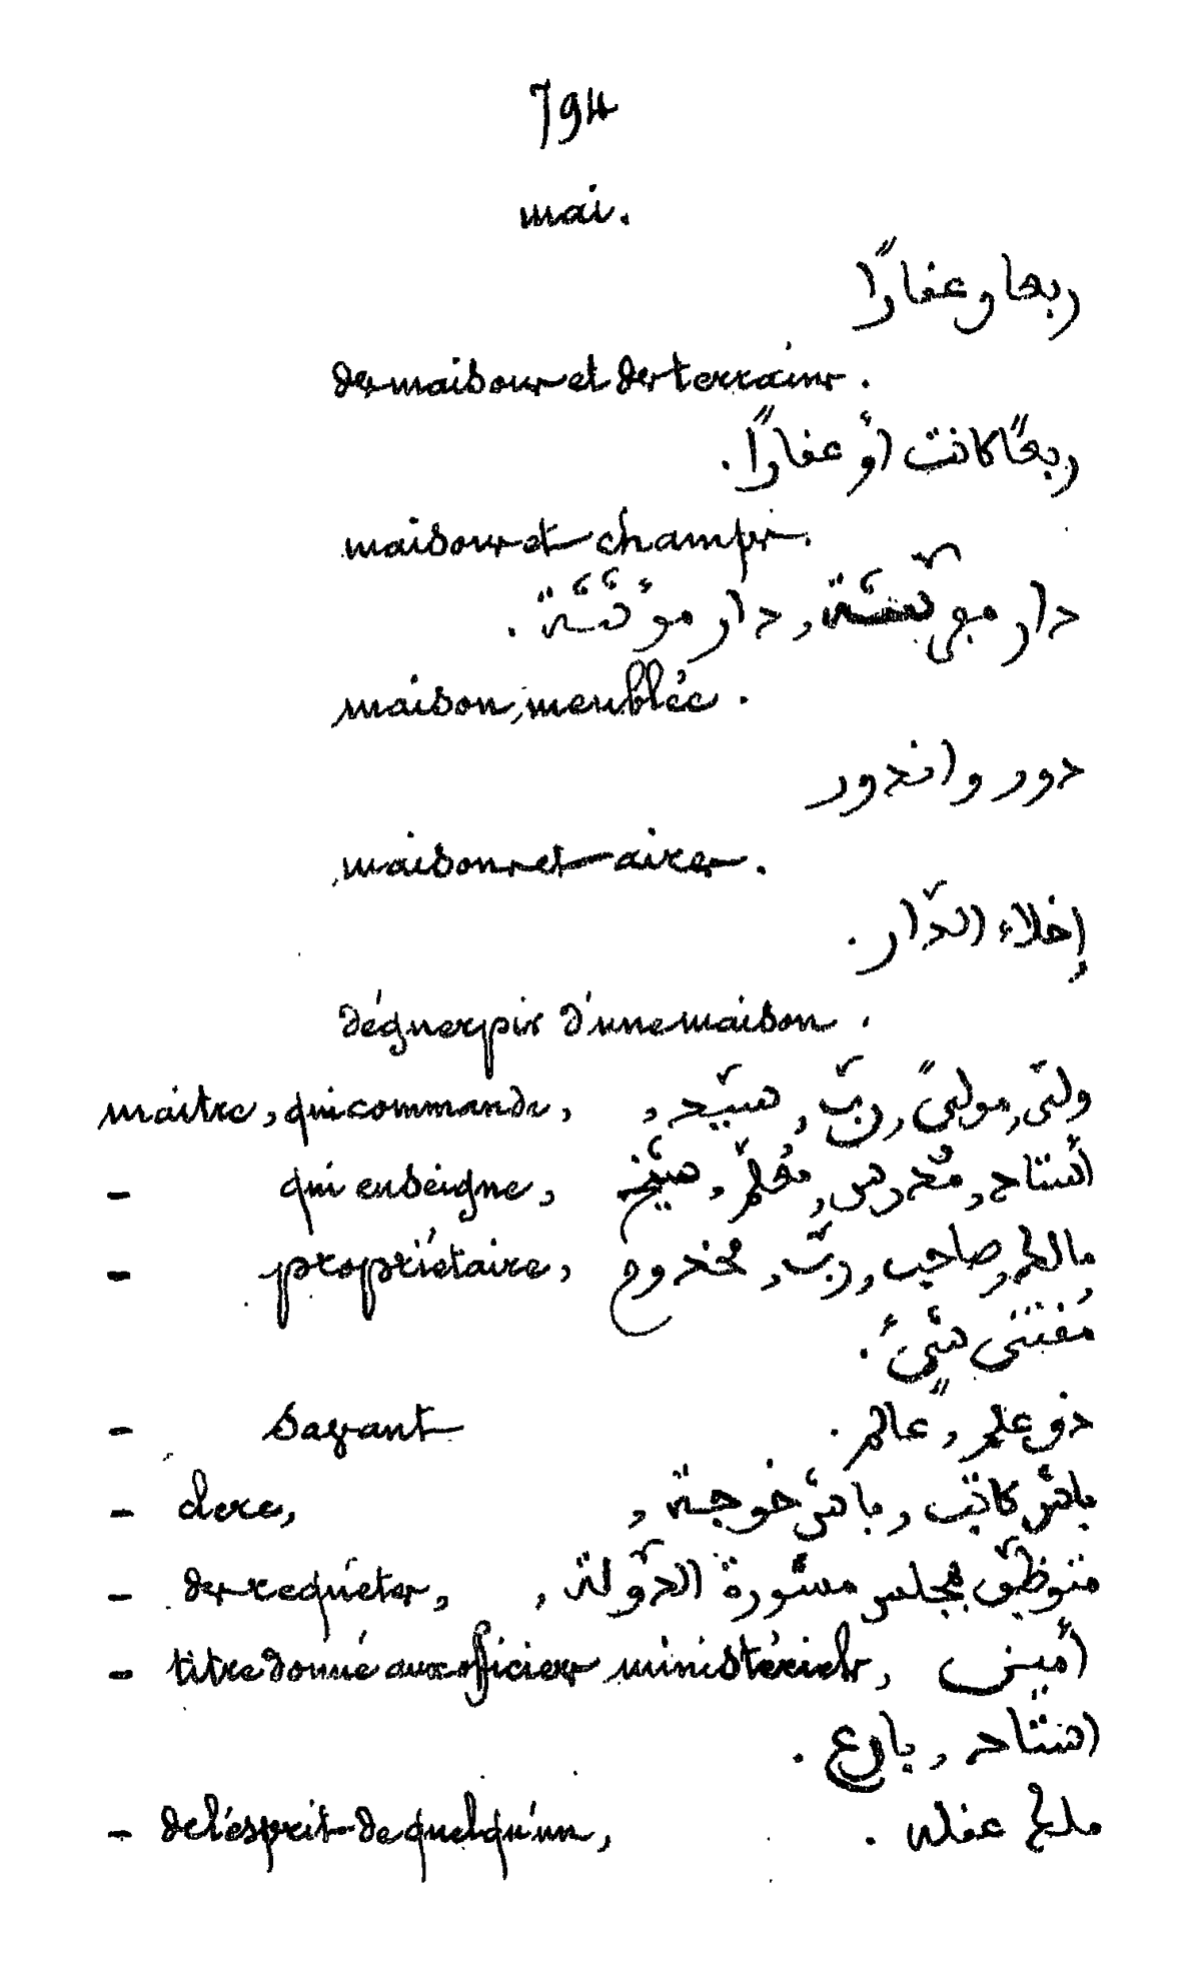 794
mai.
ربعا وعقارًا
des maisons et des terrains.
ربعًا كانت أو عقارًا.
maisons et champs.
دار مؤثثة.
maison, meublée.
دور واندور
maisons et aires.
إخلاء الدّار.
déguerpir d'une maison.
maître, qui commande, ولىّ, مولىً, ربّ, سيّد,
- qui enseigne, أستاد, مدرس, معلّم, شيخ
- propriétaire, مالك, صاحب, ربّ, مخدوم
مقتنى شىء.
- savant ذو علم, عالم.
- clerc, باش كاتب, باش خوجة,
- des requêtes, متوظّف بمجلس مشورة الدّولة,
- titre donné aux officiers ministériels, أمين
استاد, بارع.
- de l'ésprit de quelqu'un, ملك عقله.